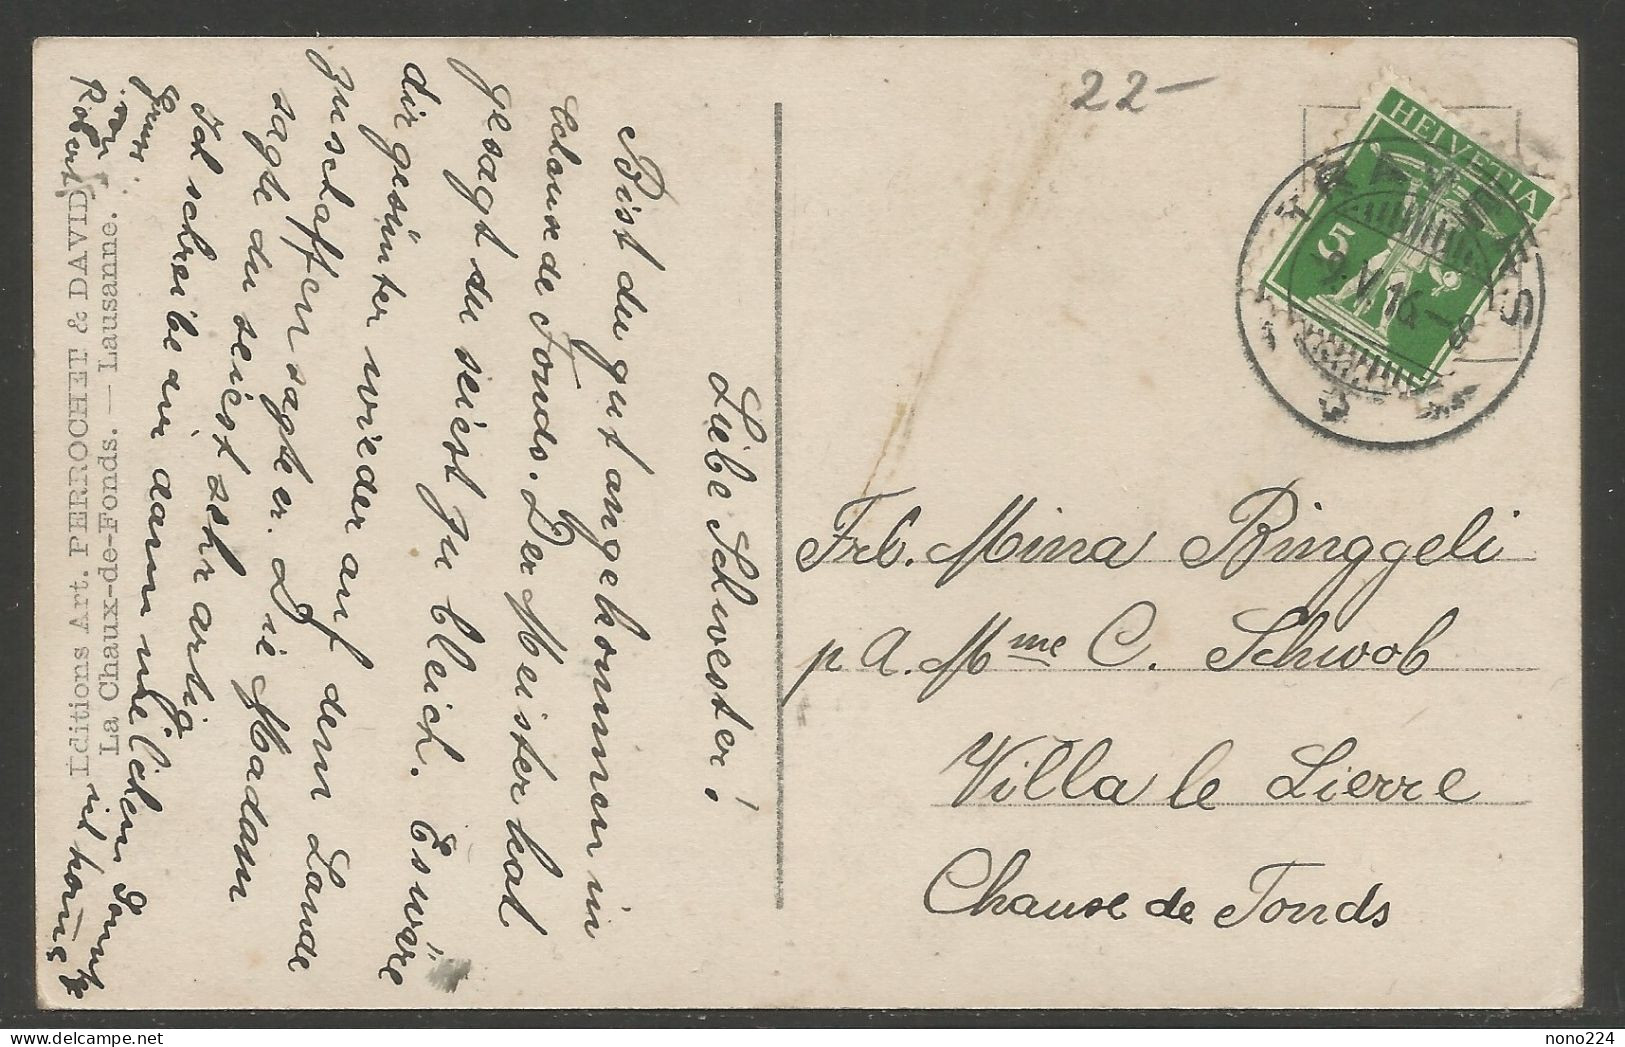 22-
HELVETIA
5
9.V.16.-8
Frl. Mina Ringgeli
p A. Mme C. Schwob
Villa le Lierre
Chause de Fonds
Liebe Schwester!
Bist du gut angekommen in
Chaux de Fonds. Der Meister hat
gesagt du seiest zu bleich. Es wäre
dir gesünter wieder auf dem Lande
zu schaffen sagte er. Die Madam
sagte du seiest sehr artig
Ich schreibe dir dann welchen Sonnt
ich komme
Gruss
von
Robert
Editions Art. PERROCHET & DAVID
La Chaux-de-Fonds. — Lausanne.
nono224